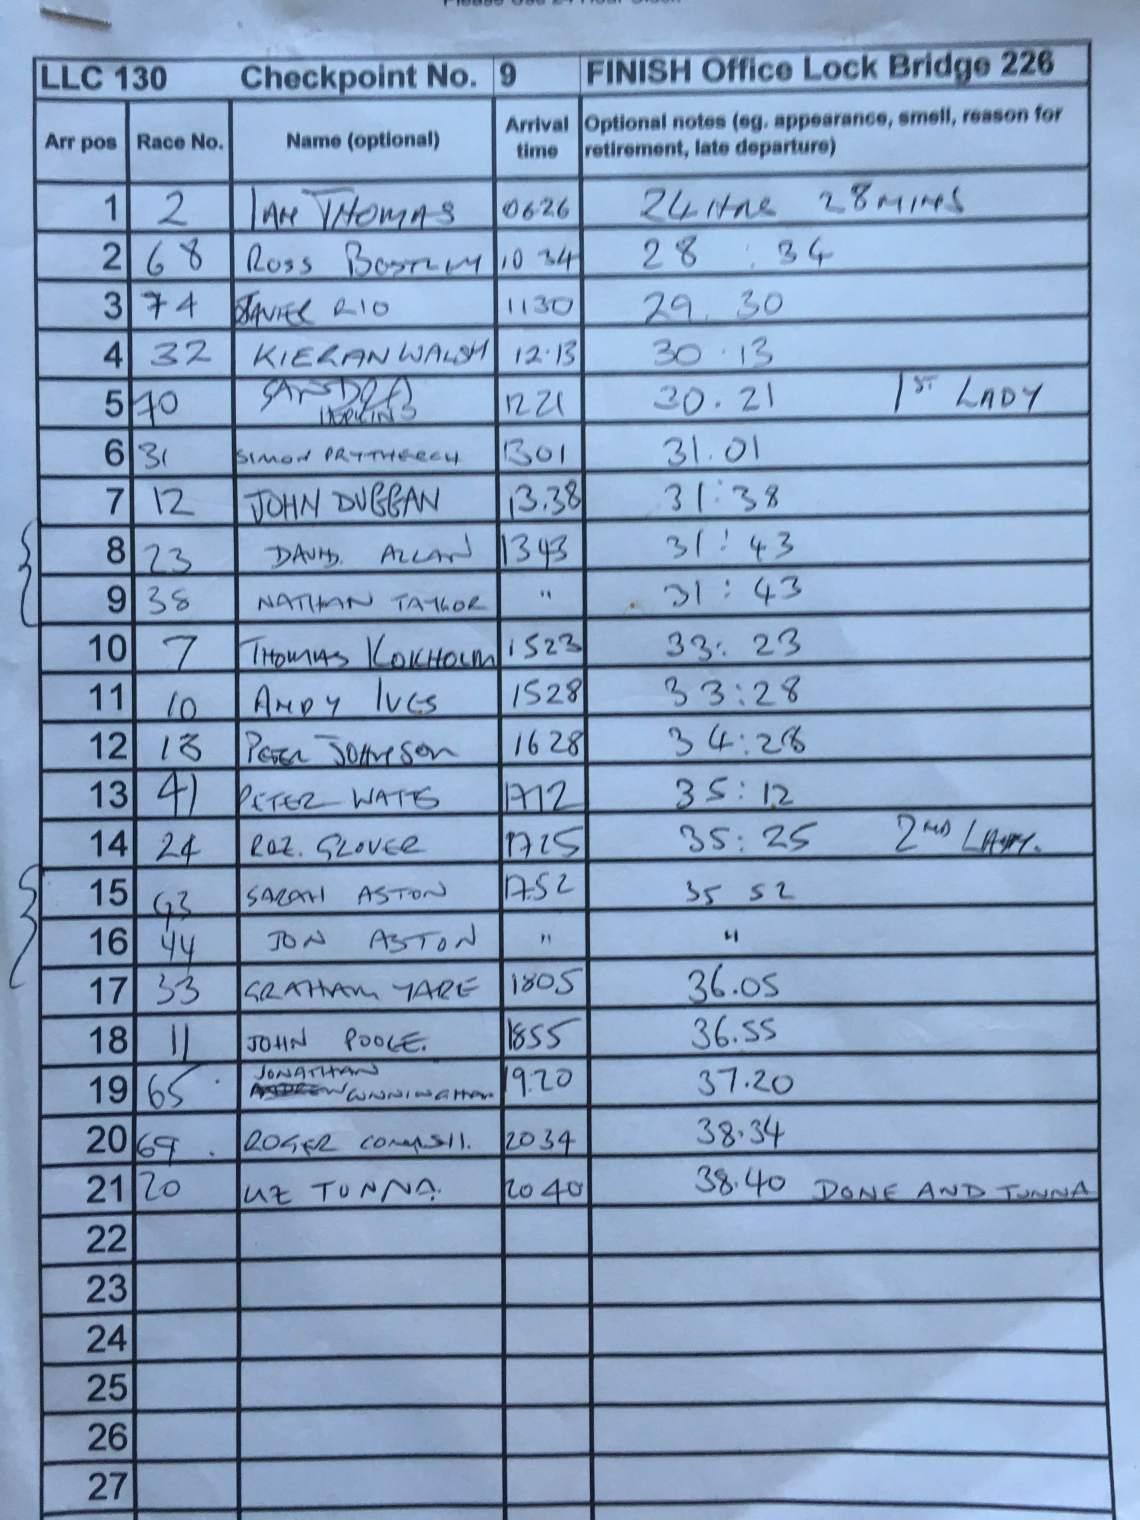 LLC 130 Checkpoint No. 9 FINISH Office Lock Bridge 226
Arr pos Race No. Name (optional) Arrival time Optional notes (eg. appearance, smell, reason for retirement, late departure)
1 2 IAN THOMAS 0626 24 28 MINS
2 68 ROSS 1034 28 : 34
3 74 JAVIER RIO 1130 29.30
4 32 KIERAN WALSH 12.13 30.13
5 70 SANDRA 1221 30.21 1ST LADY
6 31 SIMON PRYTHERCH 1301 31.01
7 12 JOHN DUGGAN 13.38 31:38
8 23 DAVID. ALLAN 1343 31:43
9 38 NATHAN TAYLOR " 31:43
10 7 THOMAS KOKHOLM 1523 33:23
11 10 ANDY IVES 1528 33:28
12 18 PETER JOHNSON 1628 34:28
13 41 PETER WATTS 1712 35:12
14 24 ROZ. GLOVER 1725 35:25 2ND LADY.
15 SARAH ASTON 1752 35 52
16 44 JON ASTON " "
17 33 GRAHAM YARE 1805 36.05
18 11 JOHN POOLE. 1855 36.55
19 65 JONATHAN CUNNINGHAM 19.20 37.20
20 69 ROGER 2034 38.34
21 20 TUNNA. 2040 38.40 DONE AND TUNNA
22
23
24
25
26
27